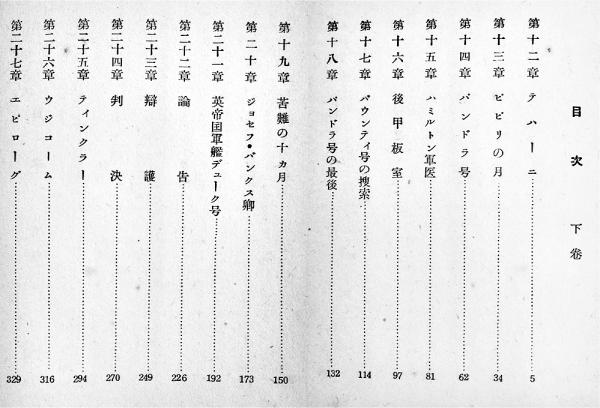 目次　下卷
第十二章　テハーニ……5
第十三章　ピピリの月……34
第十四章　パンドラ号……62
第十五章　ハミルトン軍医……81
第十六章　後甲板室……97
第十七章　バウンティ号の捜索……114
第十八章　パンドラ号の最後……132
第十九章　苦難の十カ月……150
第二十章　ジョセフ・バンクス卿……173
第二十一章　英帝国軍艦デューク号……192
第二十二章　論告……226
第二十三章　辯護……249
第二十四章　判決……270
第二十五章　ティンクラー……294
第二十六章　ウジコーム……316
第二十七章　エピローグ……329